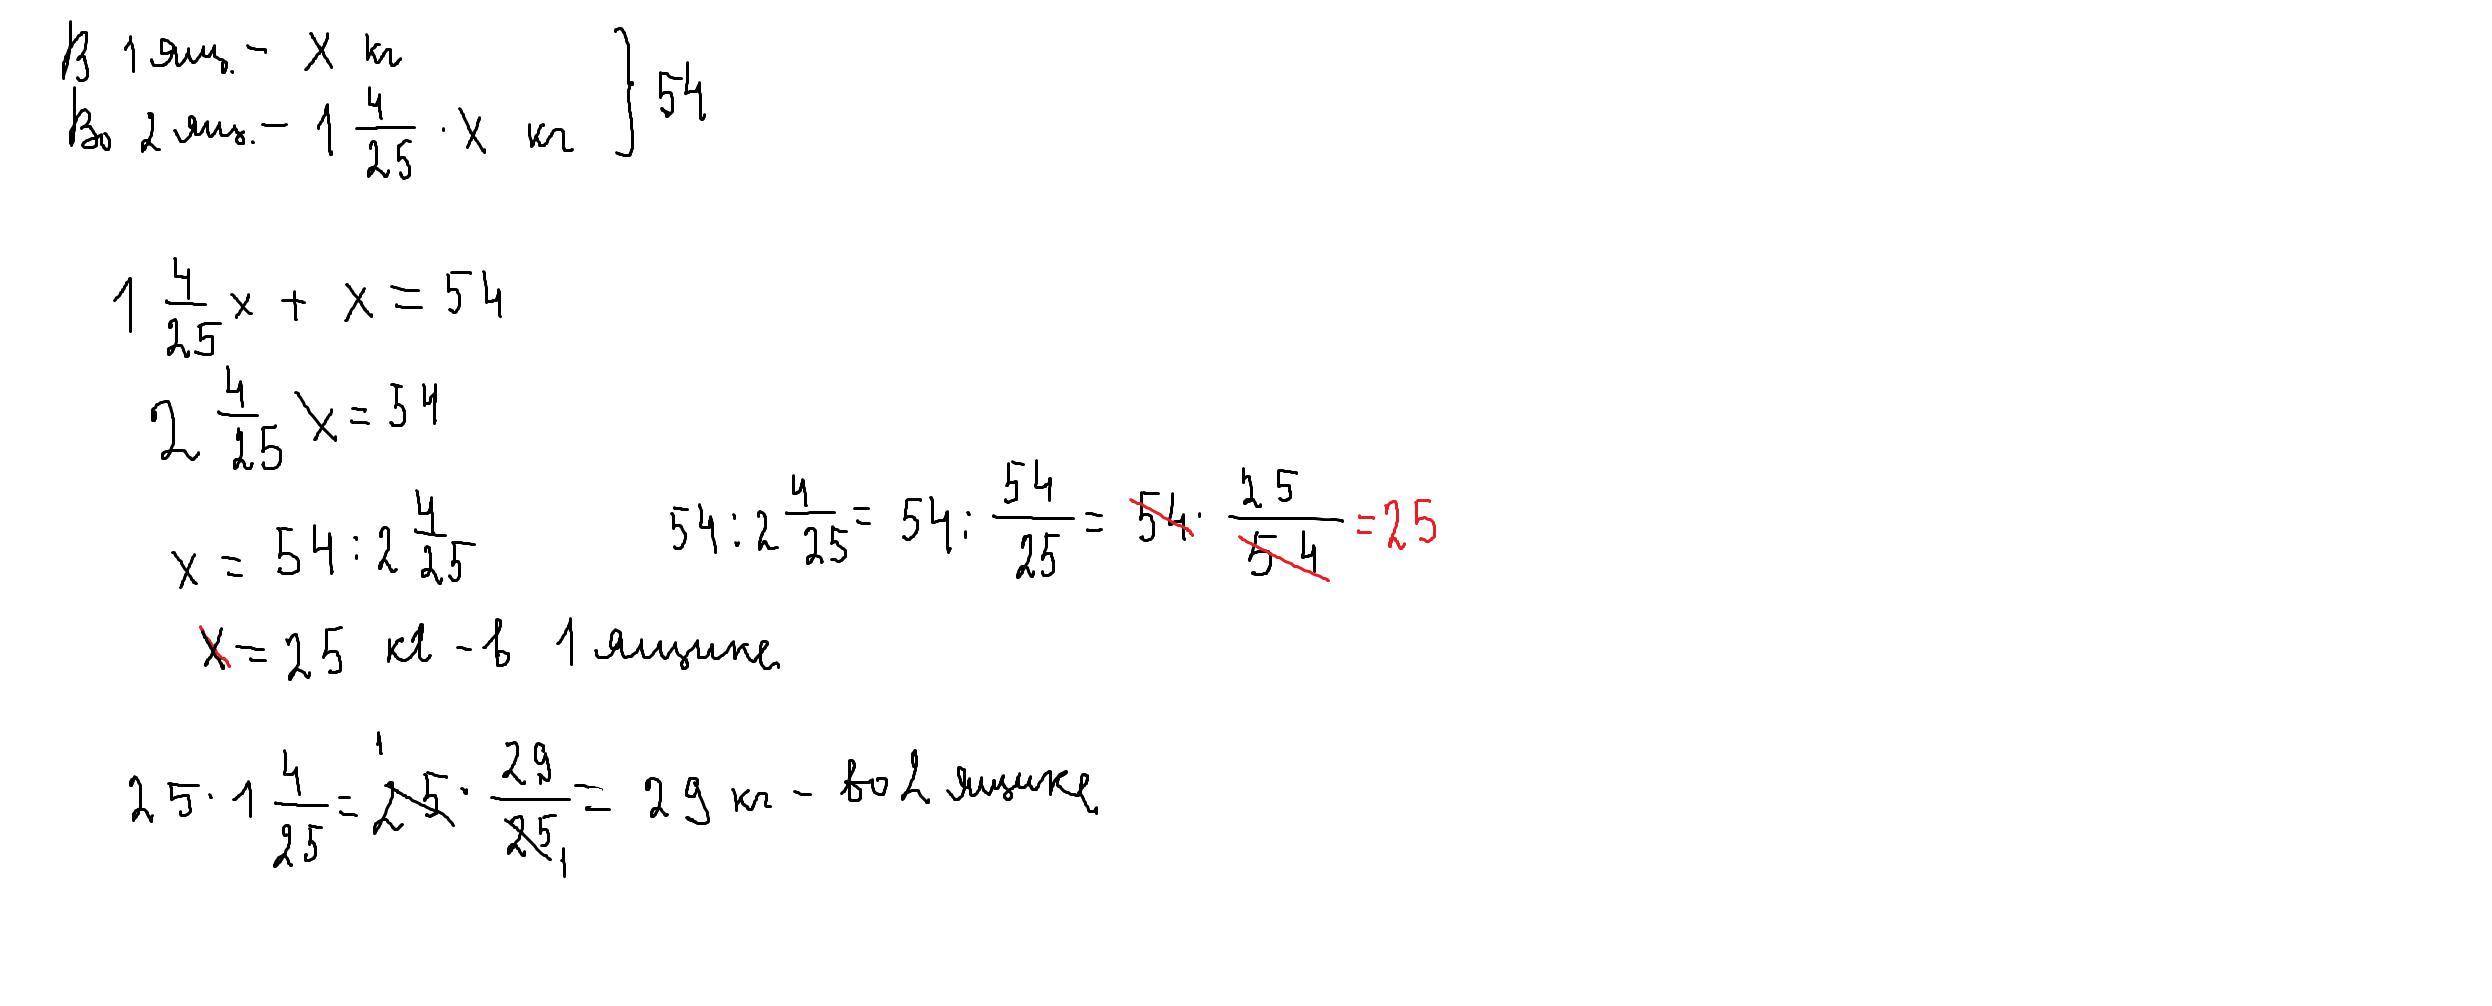 В 1 ящ. - x кг
Во 2 ящ. - 1 4/25 · x кг } 54
1 4/25 x + x = 54
2 4/25 x = 54
x = 54 : 2 4/25
54 : 2 4/25 = 54 : 54/25 = 54 · 25/54 = 25
x = 25 кг - в 1 ящике
25 · 1 4/25 = 25 · 29/25 = 29 кг - во 2 ящике